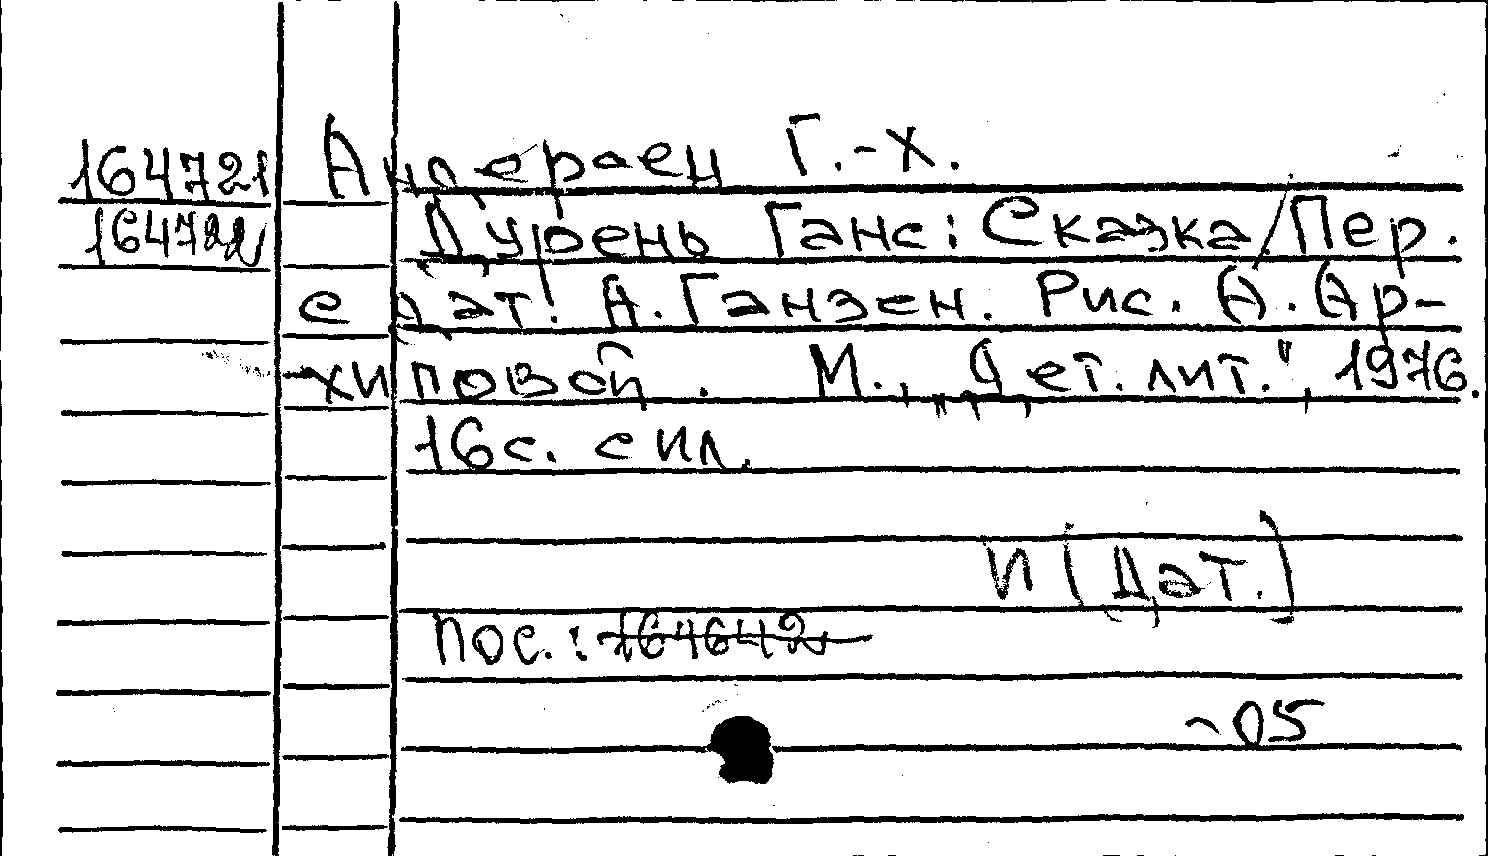 164721 Андерсен Г.-Х.
164722 Дурень Ганс: Сказка/Пер.
с дат. А. Ганзен. Рис. А. Ар-
хиповой. М., „Дет. лит.", 1976.
16с. с ил.
И (Дат.)
пос.: 164642
-05